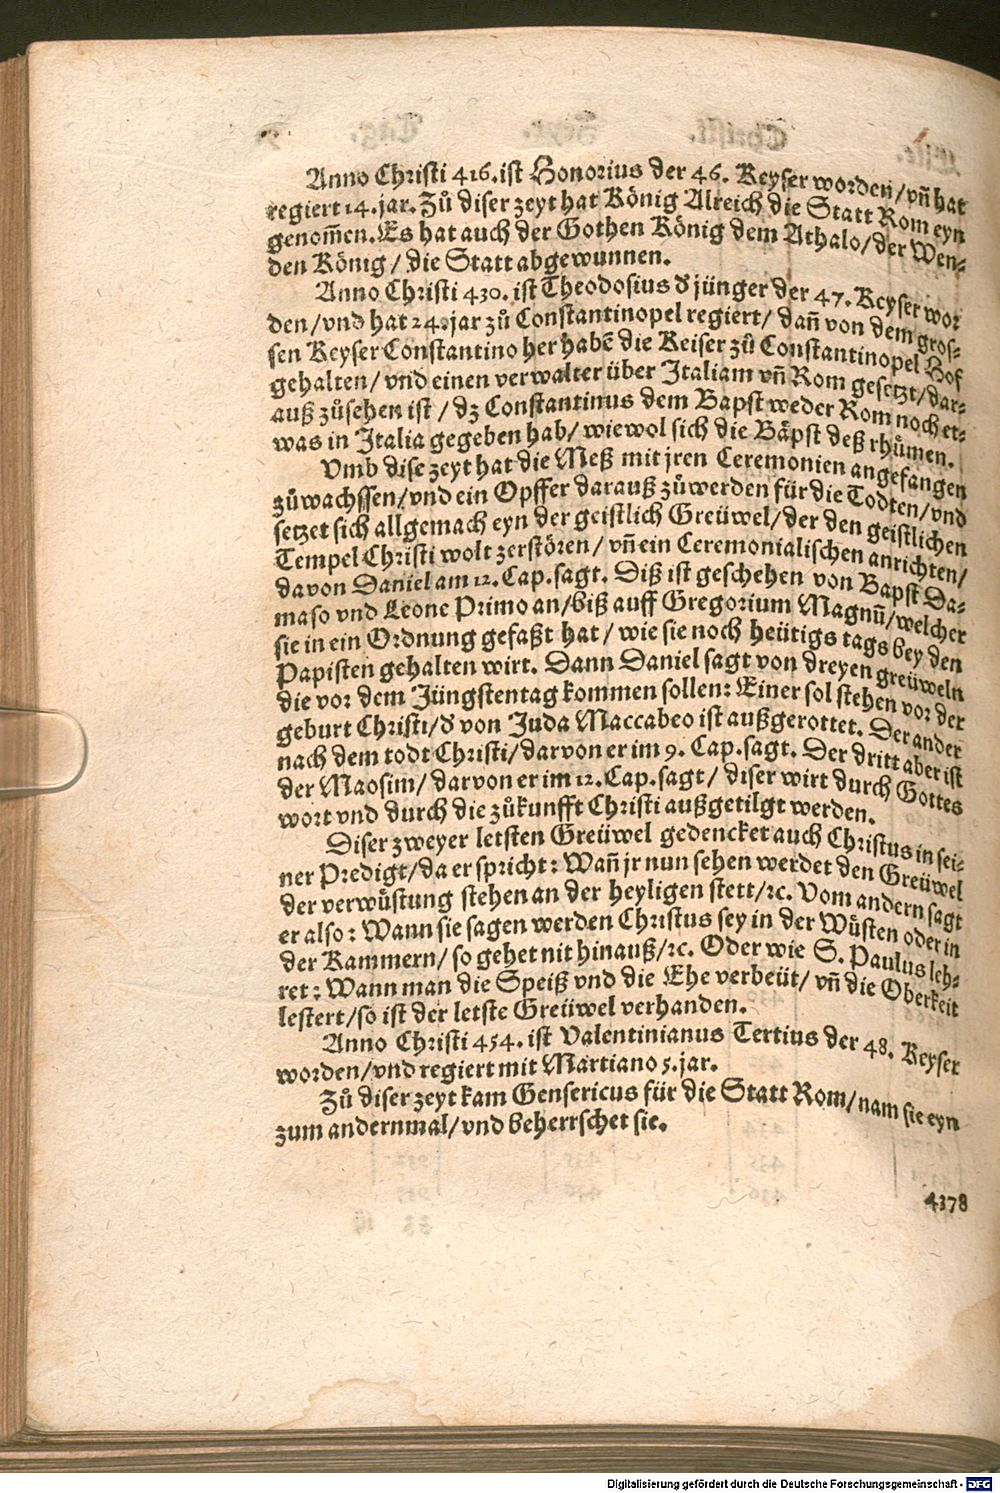 Anno Christi 416. ist Honorius der 46. Keyser worden/ vñ hat
regiert 14. jar. Zů diser zeyt hat König Alreich die Statt Rom eyn
genom̃en. Es hat auch der Gothen König dem Athalo/ der Wen⸗
den König/ die Statt abgewunnen.
Anno Christi 430. ist Theodosius đ jünger der 47. Keyser wor
den/ vnd hat 24. jar zů Constantinopel regiert/ dañ von dem gros⸗
sen Keyser Constantino her habē die Keiser zů Constantinopel Hof
gehalten/ vnd einen verwalter über Italiam vñ Rom gesetzt/ dar⸗
auß zůsehen ist/ dz Constantinus dem Bapst weder Rom noch et⸗
was in Italia gegeben hab/ wiewol sich die Bäpst deß rhůmen.
Vmb dise zeyt hat die Meß mit jren Ceremonien angefangen
zůwachssen/ vnd ein Opffer darauß zůwerden für die Todten/ vnd
setzet sich allgemach eyn der geistlich Greüwel/ der den geistlichen
Tempel Christi wolt zerstören/ vñ ein Ceremonialischen anrichten/
davon Daniel am 12. Cap. sagt. Diß ist geschehen von Bapst Da⸗
maso vnd Leone Primo an/ biß auff Gregorium Magnū/ welcher
sie in ein Ordnung gefaßt hat/ wie sie noch heütigs tags bey den
Papisten gehalten wirt. Dann Daniel sagt von dreyen greüweln
die vor dem Jüngstentag kommen sollen: Einer sol stehen vor der
geburt Christi/ đ von Juda Maccabeo ist außgerottet. Der ander
nach dem todt Christi/ darvon er im 9. Cap. sagt. Der dritt aber ist
der Maosim/ darvon er im 12. Cap. sagt/ diser wirt durch Gottes
wort vnd durch die zůkunfft Christi außgetilgt werden.
Diser zweyer letsten Greüwel gedencket auch Christus in sei⸗
ner Predigt/ da er spricht: Wañ jr nun sehen werdet den Greüwel
der verwůstung stehen an der heyligen stett/ ꝛc. Vom andern sagt
er also: Wann sie sagen werden Christus sey in der Wůsten oder in
der Kammern/ so gehet nit hinauß/ ꝛc. Oder wie S. Paulus leh⸗
ret: Wann man die Speiß vnd die Ehe verbeüt/ vñ die Oberkeit
lestert/ so ist der letste Greüwel verhanden.
Anno Christi 454. ist Valentinianus Tertius der 48. Keyser
worden/ vnd regiert mit Martiano 5. jar.
Zů diser zeyt kam Gensericus für die Statt Rom/ nam sie eyn
zum andernmal/ vnd beherrschet sie.
4378
Digitalisierung gefördert durch die Deutsche Forschungsgemeinschaft - DFG